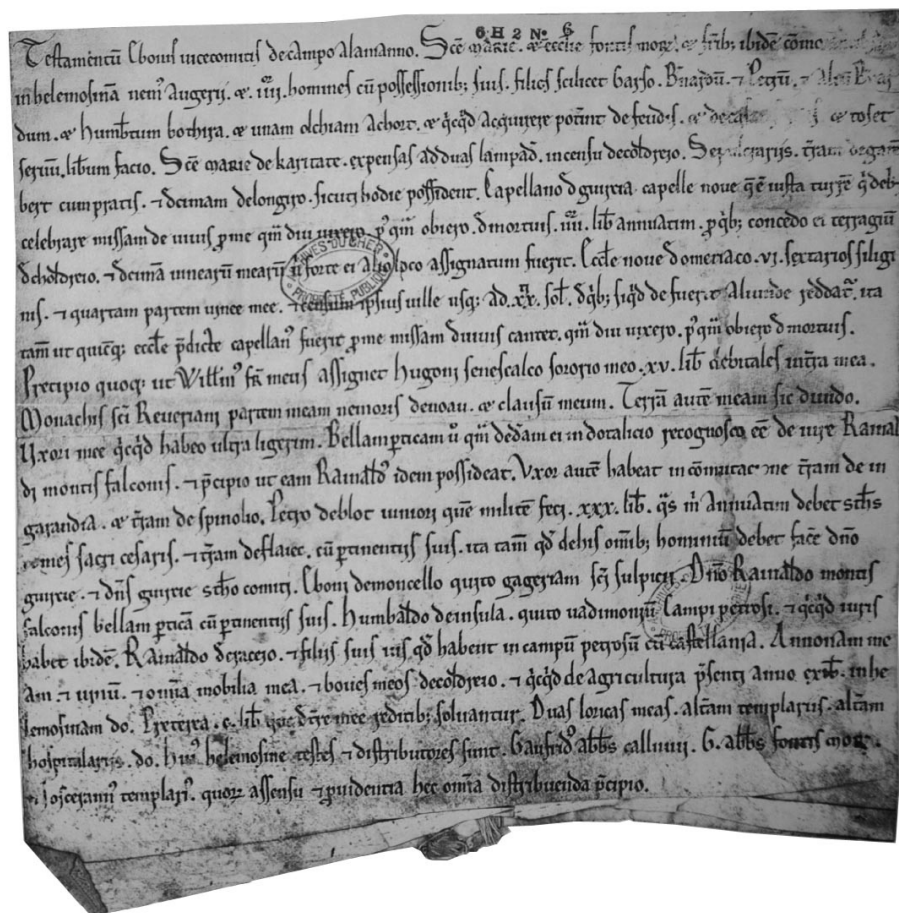 6 H 2 N° 6
Testamentū Ebonis uicecomitis de campo alamanno. Scē MARIE. & ecclie fontis mor. & frib; ibidē
in helemosina nem' Augerij. & .IIII. homines cū possessionib; suis. filios scilicet Garso. Bnardū. & Petrū. &
dum. & humbtum bothira. & unam olchiam Achort. & qcqd acquirere potint de feudis. & toset
seruū. libum facio. Scē MARIE de karitate. expensas ad duas lampad. in censu decoldreio. trām
bert cum pratis. ⁊ decimam delongiro. sicuti hodie possident. Capellano d guircia capelle noue q ē iusta turrē q deb
celebrare missam de uiuis p me qm diu uixero. p' qm obiero d mortuis. IIII. lib annuatim. p qb; concedo ei terragiū
d choldreio. ⁊ decimā uinearū mearū ñ forte ei alio loco assignatum fuerit. Eccle noue d omeriaco. VI. sextarios siligi
nis. ⁊ quartam partem uinee mee. ⁊ censum ipsius uille usq; ad .XX. sol. d qb; siqd de fuerit aliunde reddat. ita
tam ut quicq; eccle pdicte capellan' fuerit p me missam d uiuis cantet. qm diu uixero. p' qm obiero d mortuis.
Precipio quoq; ut Willm' fr meus assignet hugoni senescalco sororio meo .XV. lib debitales in trra mea.
Monachis sci Reueriani partem meam nemoris denoau. & clausū meum. Terrā autē meam sic diuido.
Uxori mee qcqd habeo ultra ligerim. Bellam pticam u qm dedam ei in dotalicio recognosco eē de iure Rainal
di montis falconis. ⁊ pcipio ut eam Rainald' idem possideat. Uxor autē habeat in cōmutac ne trām de in
garandia. & trām de spinolio. Petro deblot iuniori quē militē feci. XXX. lib. qs m annuatim debet
comes sacri cesaris. ⁊ trām deflaiec. cū ptinentijs suis. ita tam qd dehis omib; hominiū debet facē dno
guircie. ⁊ dns guircie comiti. Eboni demoncello quito gageriam sci sulpicij. Dno Rainaldo montis
falconis bellam pticā cū ptinentijs suis. Humbaldo deinsula. quito uadimoniū Campi petrosi. ⁊ qcqd iuris
habet ibidē. Rainaldo ⁊ filijs suis ius qd habent in campū petrosū cū castellania. Annonam me
am ⁊ uinū. ⁊ omīa mobilia mea. ⁊ boues meos decoldreio. ⁊ qcqd de agricultura psenti anno exib. in he
lemosinam do. Preterea .C. lib que d trre mee redditib; soluantur. Duas loricas meas. altam templarijs. altam
hospitalarijs. do. Hui' helemosine testes ⁊ distributores sunt. Gaufrid' abbs calliuij. G. abbs fontis mor.
⁊ Joscerann' templari'. quor assensu ⁊ puidentia hec omīa distribuenda pcipio.
ARCHIVES DU CHER
PROPRIETE PUBLIQUE